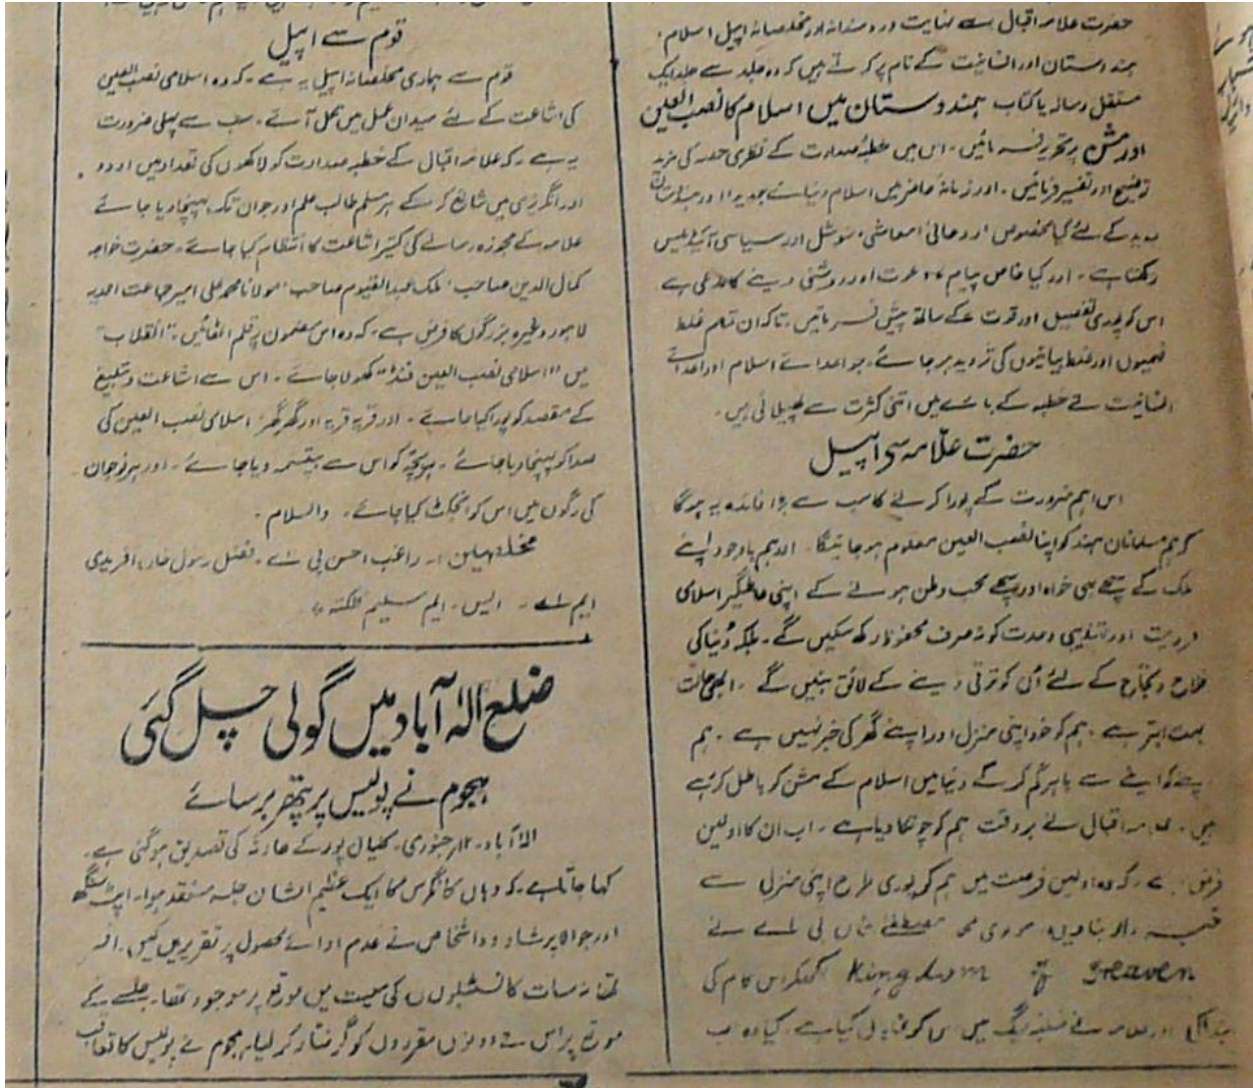 حضرت علامہ اقبال سے نہایت دردمندانہ اور مخلصانہ اپیل اسلام،
ہندوستان اور انسانیت کے نام پر کرتے ہیں کہ وہ جلد سے جلد ایک
مستقل رسالہ یا کتاب ہندوستان میں اسلام کا نصب العین
اور مشن پر تحریر فرمائیں۔ اس میں خطبۂ صدارت کے نظری حصہ کی مزید
توضیح اور تفسیر فرمائیں۔ اور زمانۂ حاضر میں اسلام دنیائے جدید اور
کے لئے کیا مخصوص روحانی، معاشی، سوشل اور سیاسی آئیڈیلس
رکھتا ہے۔ اور کیا خاص پیام دعوت اور روشنی دینے کا مدعی ہے
اس کو پوری تفصیل اور قوت کے ساتھ پیش فرمائیں۔ تاکہ ان تمام غلط
فہمیوں اور غلط بیانیوں کی تردید ہو جائے۔ جو اعدائے اسلام اور اعدائے
انسانیت نے خطبہ کے بارے میں اتنی کثرت سے پھیلائی ہیں۔
حضرت علامہ سے اپیل
اس اہم ضرورت کے پورا کرنے کا سب سے بڑا فائدہ یہ ہوگا
کہ ہم مسلمانان ہند کو اپنا نصب العین معلوم ہو جائیگا۔ اور ہم باوجود اپنے
ملک کے سچے بہی خواہ اور سچے محب وطن ہونے کے اپنی عالمگیر اسلامی
اور تہذیبی وحدت کو نہ صرف محفوظ رکھ سکیں گے۔ بلکہ دنیا کی
فلاح و نجاح کے لئے اُن کو ترقی دینے کے لائق بنیں گے۔ ابھی حالت
بہت ابتر ہے۔ ہم کو خود اپنی منزل اور اپنے گھر کی خبر نہیں ہے۔ ہم
اپنے کو اپنے سے باہر گم کر کے دنیا میں اسلام کے مشن کو باطل کر رہے
ہیں۔ علامہ اقبال نے بروقت ہم کو چونکا دیا ہے۔ اب ان کا اولین
فرض ہے۔ کہ وہ اولین فرصت میں ہم کو پوری طرح اپنی منزل سے
مولوی محمد مصطفےٰ خاں بی اے نے
Kingdom of Heaven لکھکر اس کام کی
اور علامہ نے میں اس کو کیا ہے۔
قوم سے اپیل
قوم سے ہماری مخلصانہ اپیل یہ ہے۔ کہ وہ اسلامی نصب العین
کی اشاعت کے لئے میدان عمل میں نکل آئے۔ سب سے پہلی ضرورت
یہ ہے۔ کہ علامہ اقبال کے خطبہ صدارت کو لاکھوں کی تعداد میں اردو
اور انگریزی میں شائع کر کے ہر مسلم طالب علم اور جوان تک پہنچا دیا جائے
علامہ کے مجوزہ رسالے کی کثیر اشاعت کا انتظام کیا جائے۔ حضرت خواجہ
کمال الدین صاحب، ملک عبدالقیوم صاحب، مولانا محمد علی امیر جماعت احمدیہ
لاہور وغیرہ بزرگوں کا فرض ہے۔ کہ وہ اس مضمون پر قلم اٹھائیں۔ "انقلاب"
میں "اسلامی نصب العین فنڈ" کھولا جائے۔ اس سے اشاعت و تبلیغ
کے مقصد کو پورا کیا جائے۔ اور قریہ قریہ اور گھر گھر اسلامی نصب العین کی
صدا کو پہنچا دیا جائے۔ ہر بچّہ کو اس سے بپتسمہ دیا جائے۔ اور ہر نوجوان
کی رگوں میں اس کو انجکٹ کیا جائے۔ والسلام۔
مخلصین:۔ راغب احسن بی اے۔ فضل رسول خاں آفریدی
ایم اے۔ ایس۔ ایم سلیم کلکتہ
ضلع الہ آباد میں گولی چل گئی
ہجوم نے پولیس پر پتھر برسائے
الہ آباد۔ ۱۲ جنوری۔ کے حادثہ کی تصدیق ہو گئی ہے۔
کہا جاتا ہے۔ کہ وہاں کانگرس کا ایک عظیم الشان جلسہ منعقد ہوا۔ سنگھ
اور جوالا پرشاد دو اشخاص نے عدم ادائے محصول پر تقریریں کیں۔ افسر
تھانہ سات کانسٹبلوں کی معیت میں موقع پر موجود تھا۔ جلسے کے
موقع پر اس نے دونوں مقرروں کو گرفتار کر لیا۔ ہجوم نے پولیس کا تعاقب